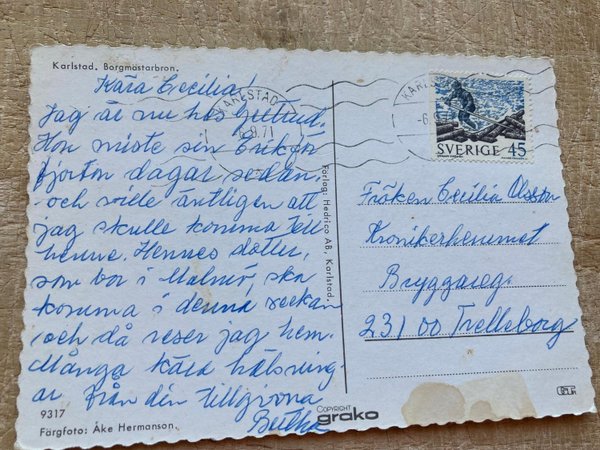 Karlstad. Borgmästarbron.
Kära Cecilia!
Jag är nu hos Gertrud.
Hon miste sin Erik för
fjorton dagar sedan
och ville äntligen att
jag skulle komma till
henne. Hennes dotter,
som bor i Malmö, ska
komma i denna veckan
och då reser jag hem.
Många kära hälsning-
ar från den tillgivna
Bertha
9317
Färgfoto: Åke Hermanson.
Förlag: Hedrico AB, Karlstad.
COPYRIGHT
grako
KARLSTAD
6.9.71
KARLSTAD
-6.9.71
SVERIGE 45
Fröken Cecilia Olsson
Kronikerhemmet
Bryggareg.
231 00 Trelleborg